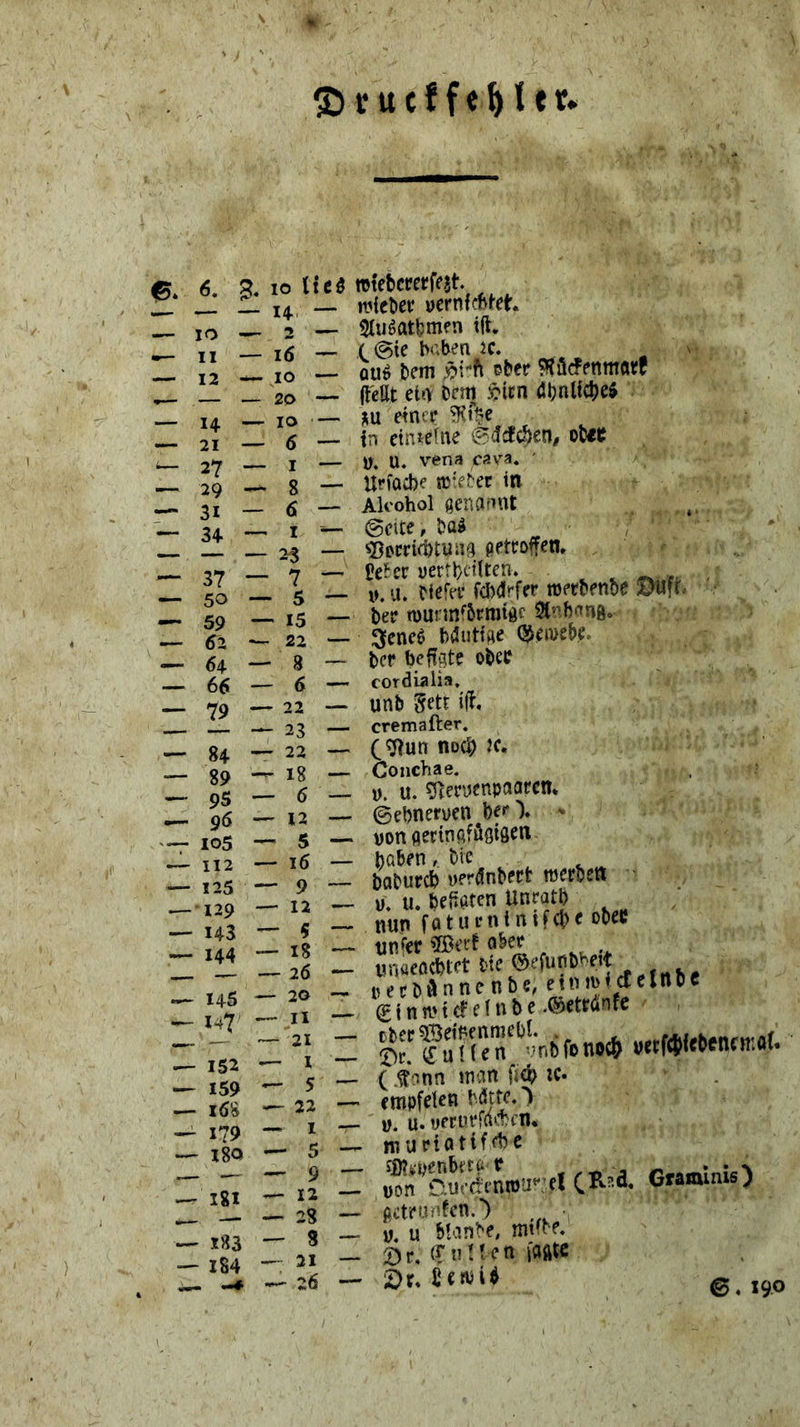 Druckfehler.
S. 6. Z. 10 lies wiederersezt.
— — — 14 — wieder vernichtet.
— 10 — 2 — Ausathmen ist.
— 11 — 16 — (Sie haben ꝛc.
— 12 — 10 — aus dem Hirn oder Rückenmark
— — — 20 — stellt ein dem Hirn ähnliches
— 14 — 10 — zu einer
— 21 — 6 — in einzelne Säckchen, oder
— 27 — 1 — v. u. vena cava.
— 29 — 8 — Ursache wieder in
— 31 — 6 — Alcohol genannt
— 34 — 1 — Seite, das
— — — 23 — Vorrichtung getroffen.
— 37 — 7 — Leber vertheilten.
— 50 — 5 — v. u. dieser schärfer werdende Duft
— 59 — 15 — der wurmförmige Anhang.
— 62 — 22 — Jenes häutige Gewebe.
— 64 — 8 — der besagte oder
— 66 — 6 — cordialia.
— 79 — 22 — und Fett ist.
— — — 23 — cremaster.
— 84 — 22 — (Nun noch ꝛc.
— 89 — 18 — Conchae.
— 95 — 6 — v. u. Nervenpaaren.
— 96 — 12 — Sehnerven her).
— 105 — 5 — von geringfügigen
— 112 — 16 — haben, die
— 125 — 9 — dadurch verändert werden
— 129 — 12 — v. u. besagten Unrath
— 143 — 5 — nun saturninische oder
— 144 — 18 — unser Werk aber
— — — 26 — ungeachtet die Gesundheit
— 145 — 20 — verdünnende, einwickelnde
— 147 — 11 — Einwickelnde Getränke
— — — 21 — oder Weitzenmehl.
— 152 — 1 — Dr. Cullen und so noch verschiedenemal.
— 159 — 5 — (Kann man sich ꝛc.
— 168 — 22 — empfelen hätte.)
— 179 — 1 — v. u. verursachen.
— 180 — 5 — muriatische
— — — 9 —
— 181 — 12 — von Queckenwurzel (Rad. Graminis)
— — — 28 — getrunken.)
— 183 — 8 — v. u blande, milde.
— 184 — 21 — Dr. Cullen sagte
— — — 26 — Dr. Lewis
S. 190